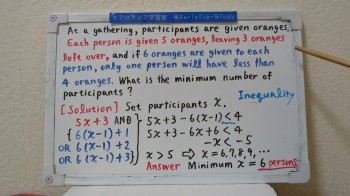 サアロフィア学習室 @Sarlofia-Study
At a gathering, participants are given oranges.
Each person is given 5 oranges, leaving 3 oranges
left over, and if 6 oranges are given to each
person, only one person will have less than
4 oranges. What is the minimum number of
participants?
Inequality
[Solution] Set participants x.
5x+3 AND
{ 6(x-1)+1
OR 6(x-1)+2
OR 6(x-1)+3 }
5x+3-6(x-1)<4
5x+3-6x+6<4
-x<-5
x>5 ⇨ x=6,7,8,9,...
Answer Minimum x=6 persons